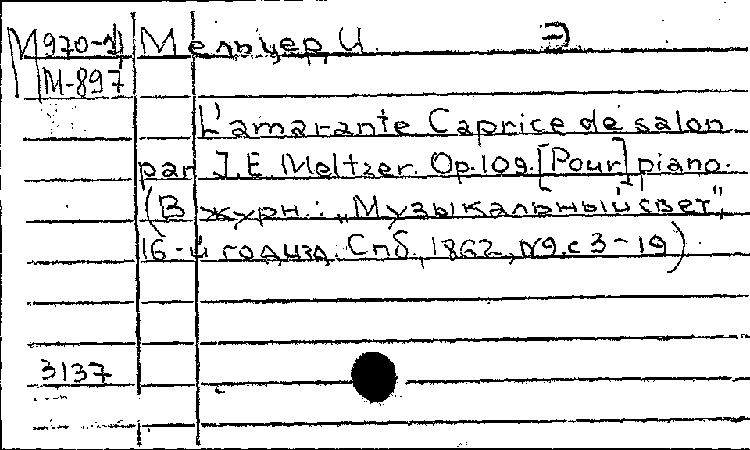 М970-11 Мельцер, И. Э
М-897
L'amarante Caprice de salon
par J.E. Meltzer. Op.109. [Pour] piano.
(В журн.: „Музыкальный свет",
16-й год изд. Спб., 1862, №9. с 3-19).
3137